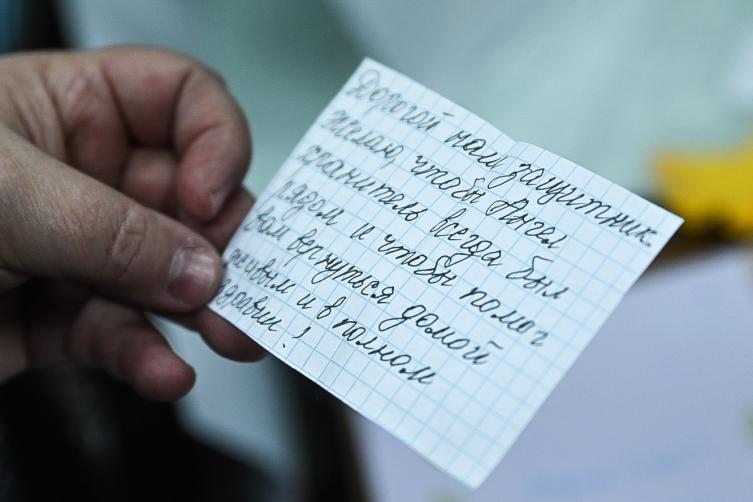 Дорогой наш защитник.
желаю, чтобы Ангел
хранитель всегда был
рядом и чтобы помог
вам вернуться домой
живым и в полном
здравии!